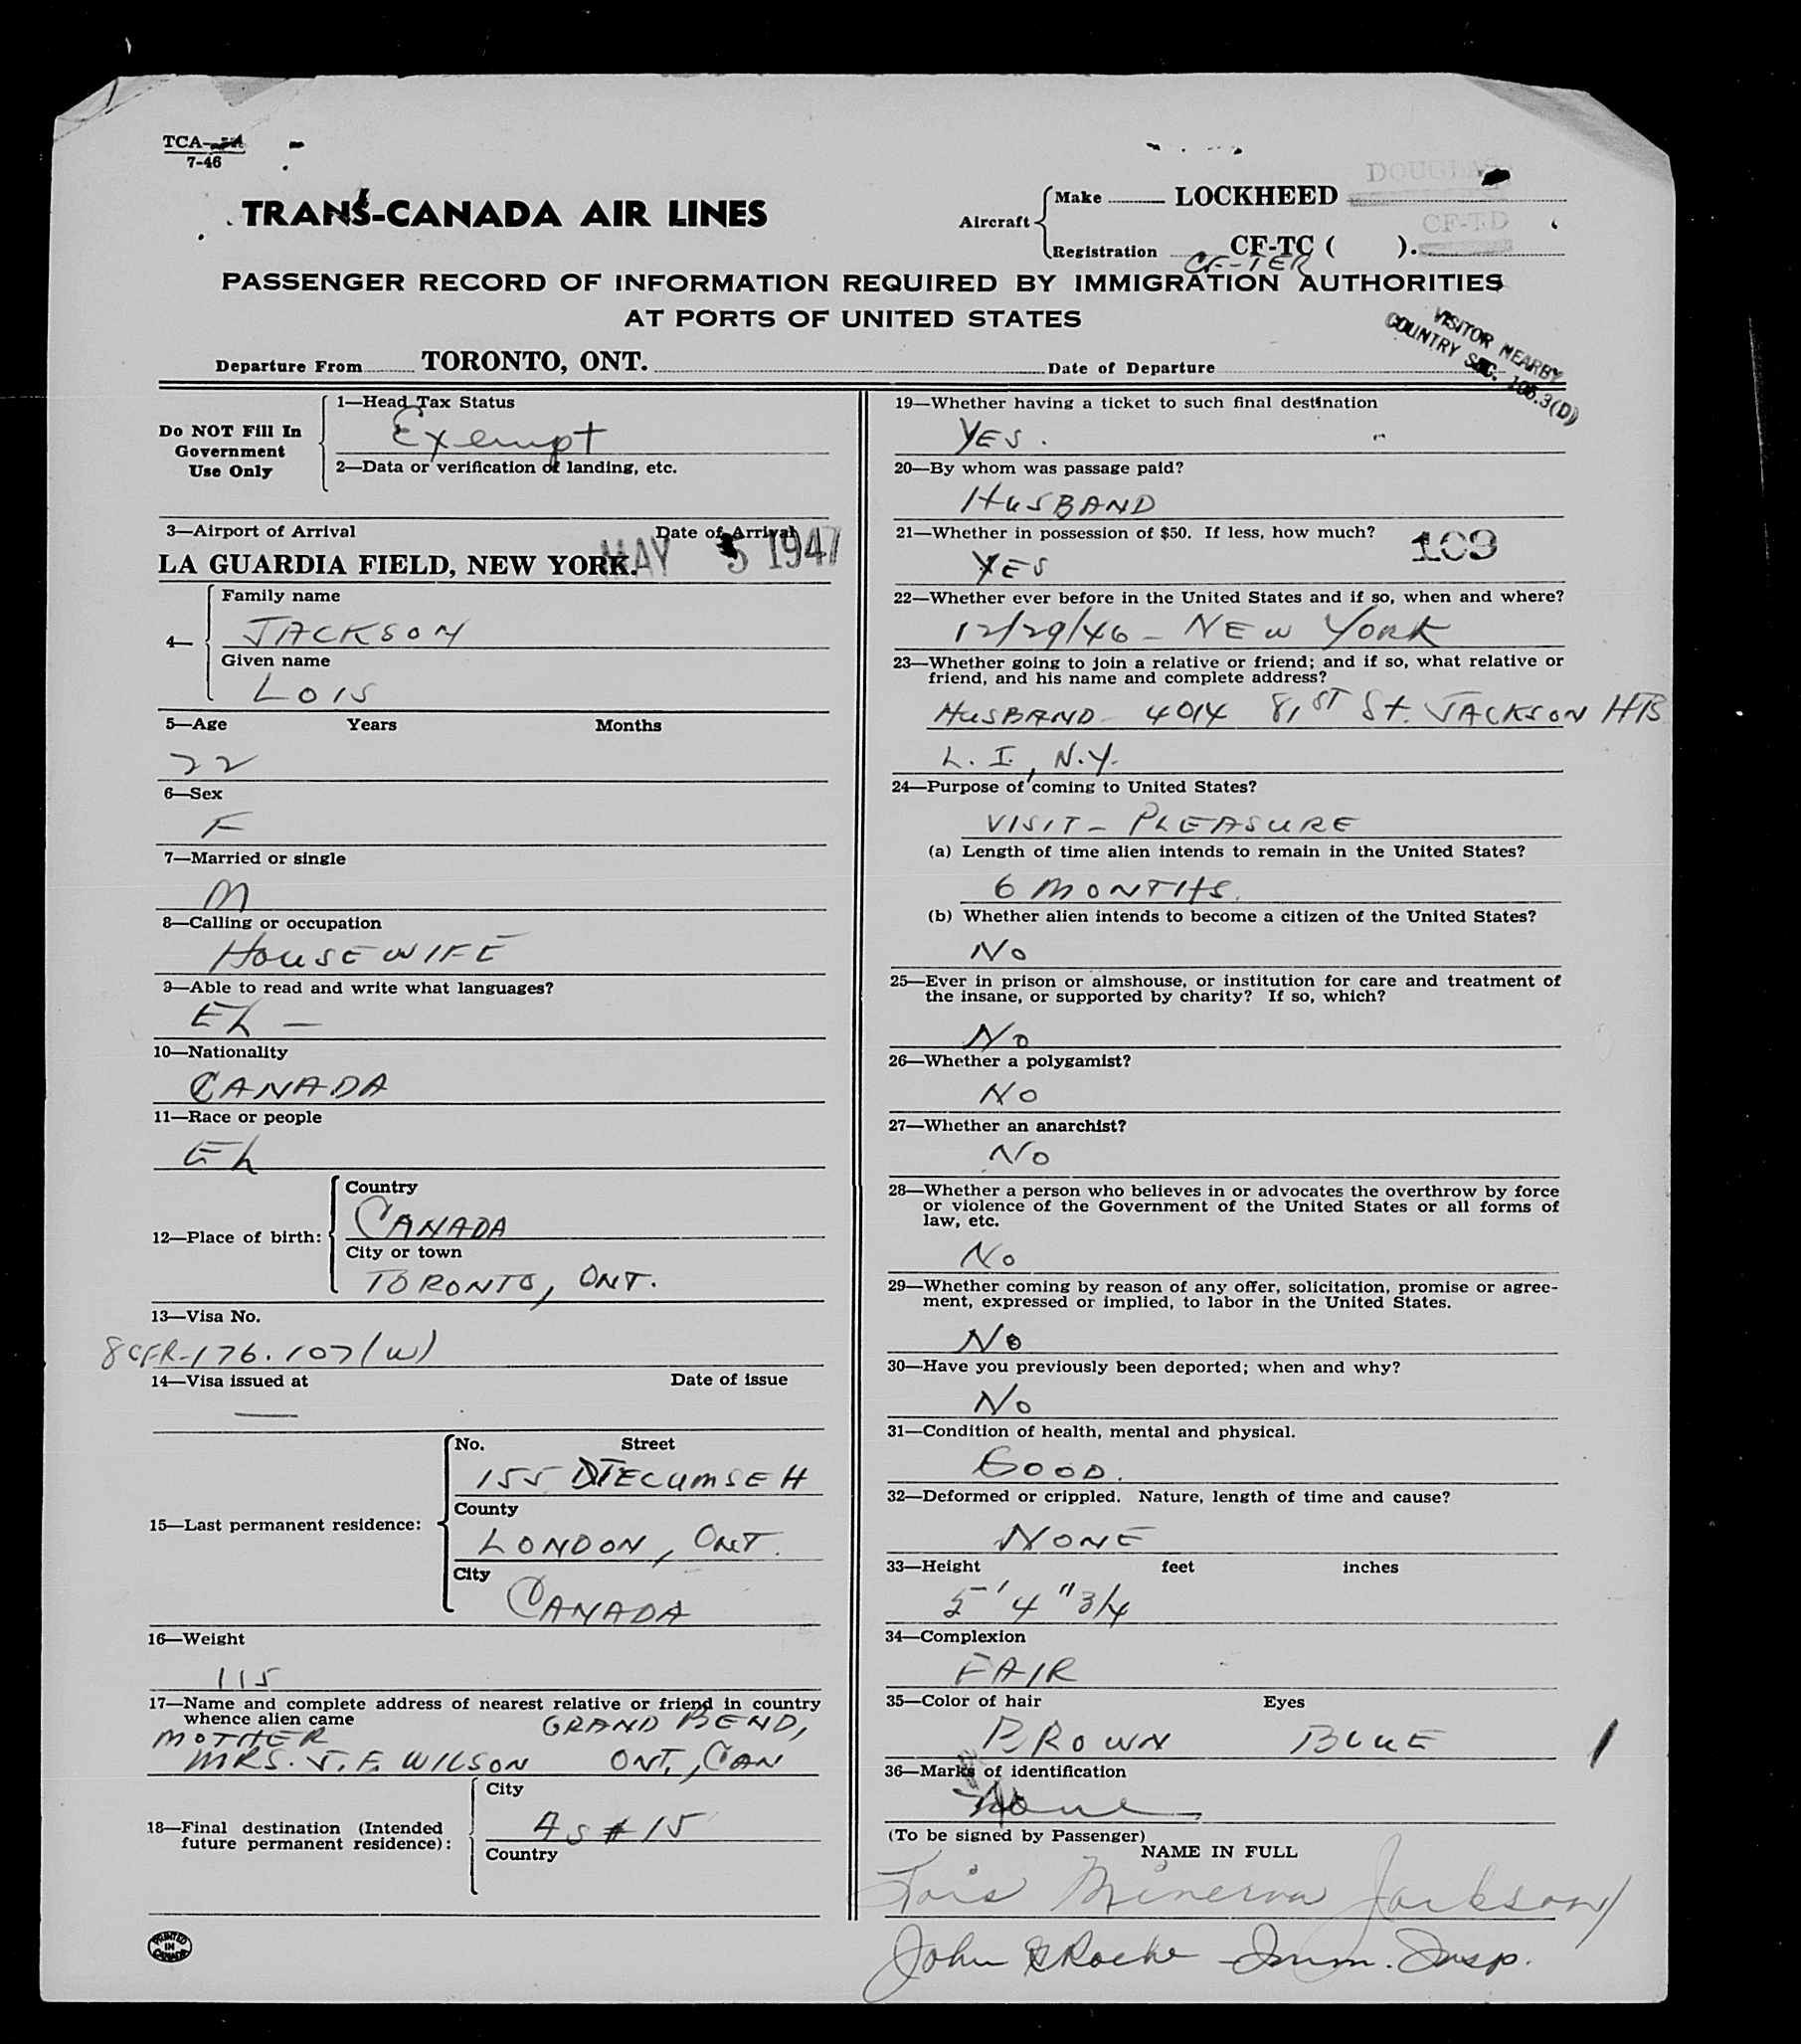 TCA-
7-46
TRANS-CANADA AIR LINES
Aircraft
Make LOCKHEED DOUGLAS
Registration CF-TC ( ). CF-T.D
CF-TER
PASSENGER RECORD OF INFORMATION REQUIRED BY IMMIGRATION AUTHORITIES
AT PORTS OF UNITED STATES
VISITOR NEARBY
COUNTRY SEC. 105.3(D)
Departure From TORONTO, ONT. Date of Departure
Do NOT Fill In
Government
Use Only
1—Head Tax Status
Exempt
2—Data or verification of landing, etc.
3—Airport of Arrival Date of Arrival
LA GUARDIA FIELD, NEW YORK. MAY 5 1947
4—
Family name
JACKSON
Given name
LOIS
5—Age Years Months
22
6—Sex
F
7—Married or single
M
8—Calling or occupation
HOUSEWIFE
9—Able to read and write what languages?
EL —
10—Nationality
CANADA
11—Race or people
EL
12—Place of birth:
Country
CANADA
City or town
TORONTO, ONT.
13—Visa No.
8CFR-176.107(W)
14—Visa issued at Date of issue
—
15—Last permanent residence:
No. Street
155 TECUMSEH
County
LONDON, ONT.
City
CANADA
16—Weight
115
17—Name and complete address of nearest relative or friend in country
whence alien came
MOTHER GRAND BEND,
MRS. J. F. WILSON ONT., CAN
18—Final destination (Intended
future permanent residence):
City
AS # 15
Country
PRINTED
IN
CANADA
19—Whether having a ticket to such final destination
YES.
20—By whom was passage paid?
HUSBAND
21—Whether in possession of $50. If less, how much?
YES 109
22—Whether ever before in the United States and if so, when and where?
12/29/46 - NEW YORK
23—Whether going to join a relative or friend; and if so, what relative or
friend, and his name and complete address?
HUSBAND - 4014 81ST St. JACKSON HTS
L. I., N.Y.
24—Purpose of coming to United States?
VISIT - PLEASURE
(a) Length of time alien intends to remain in the United States?
6 MONTHS.
(b) Whether alien intends to become a citizen of the United States?
NO
25—Ever in prison or almshouse, or institution for care and treatment of
the insane, or supported by charity? If so, which?
NO
26—Whether a polygamist?
NO
27—Whether an anarchist?
NO
28—Whether a person who believes in or advocates the overthrow by force
or violence of the Government of the United States or all forms of
law, etc.
NO
29—Whether coming by reason of any offer, solicitation, promise or agree-
ment, expressed or implied, to labor in the United States.
NO
30—Have you previously been deported; when and why?
NO
31—Condition of health, mental and physical.
GOOD.
32—Deformed or crippled. Nature, length of time and cause?
NONE
33—Height feet inches
5' 4" 3/4
34—Complexion
FAIR
35—Color of hair Eyes
BROWN BLUE
36—Marks of identification
None
(To be signed by Passenger)
NAME IN FULL
Lois Minerva Jackson
John Roche Imm. Insp.